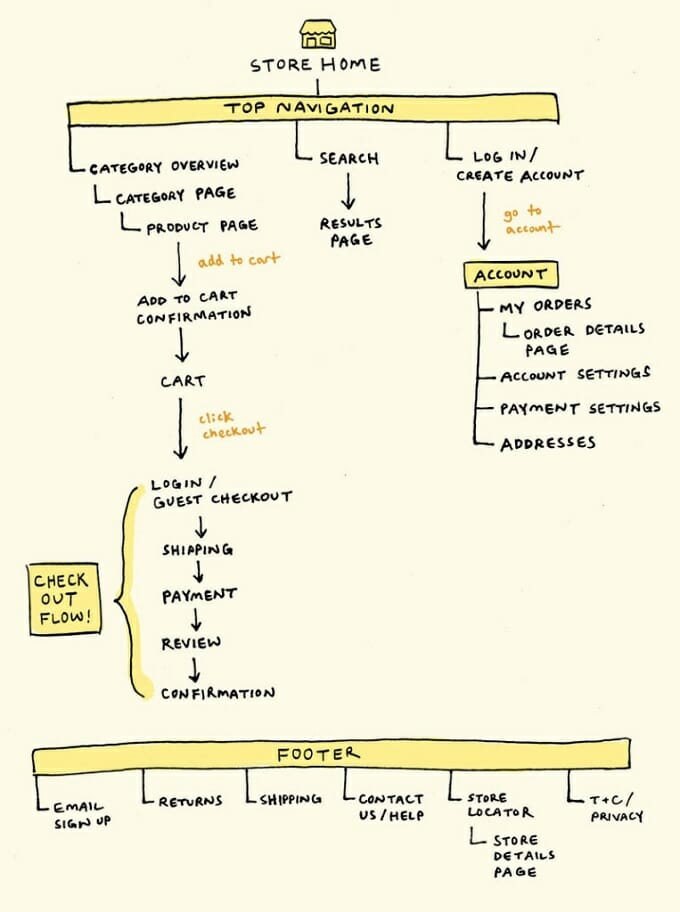 STORE HOME
TOP NAVIGATION
CATEGORY OVERVIEW
CATEGORY PAGE
PRODUCT PAGE
add to cart
ADD TO CART
CONFIRMATION
CART
click
checkout
SEARCH
RESULTS
PAGE
LOG IN/
CREATE ACCOUNT
go to
account
ACCOUNT
MY ORDERS
ORDER DETAILS
PAGE
ACCOUNT SETTINGS
PAYMENT SETTINGS
ADDRESSES
CHECK
OUT
FLOW!
LOGIN /
GUEST CHECKOUT
SHIPPING
PAYMENT
REVIEW
CONFIRMATION
FOOTER
EMAIL
SIGN UP
RETURNS
SHIPPING
CONTACT
US/HELP
STORE
LOCATOR
STORE
DETAILS
PAGE
T+C/
PRIVACY